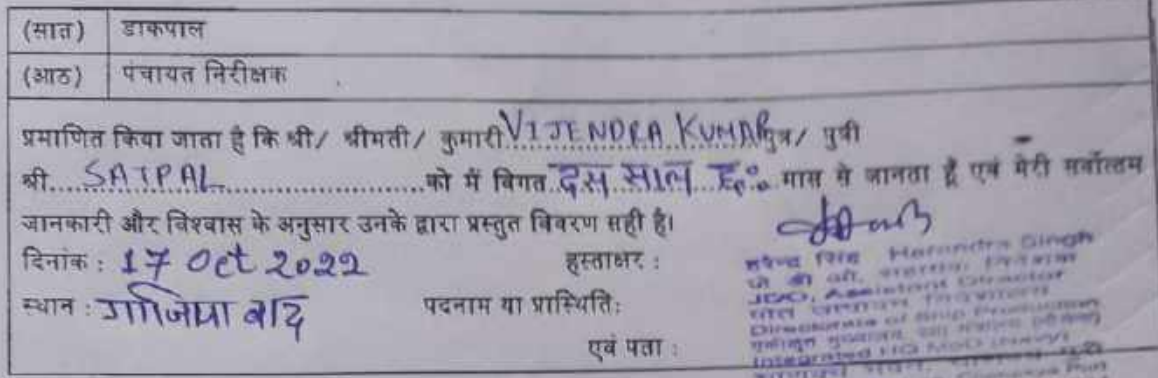 (सात) डाकपाल
(आठ) पंचायत निरीक्षक
प्रमाणित किया जाता है कि श्री/ श्रीमती/ कुमारी VIJENDRA KUMAR पुत्र/ पुत्री
श्री.....SATPAL.....................को में विगत दस साल छः मास से जानता हूँ एवं मेरी सर्वोत्तम
जानकारी और विश्वास के अनुसार उनके द्वारा प्रस्तुत विवरण सही है।
दिनांक : 17 Oct 2022 हस्ताक्षर :
हरेन्द्र सिंह Harendra Singh
JDO, Assistant Director
स्थान : गाजियाबाद पदनाम या प्रास्थिति:
Directorate of Ship Production
एवं पता :
Integrated HQ MoD (Navy)